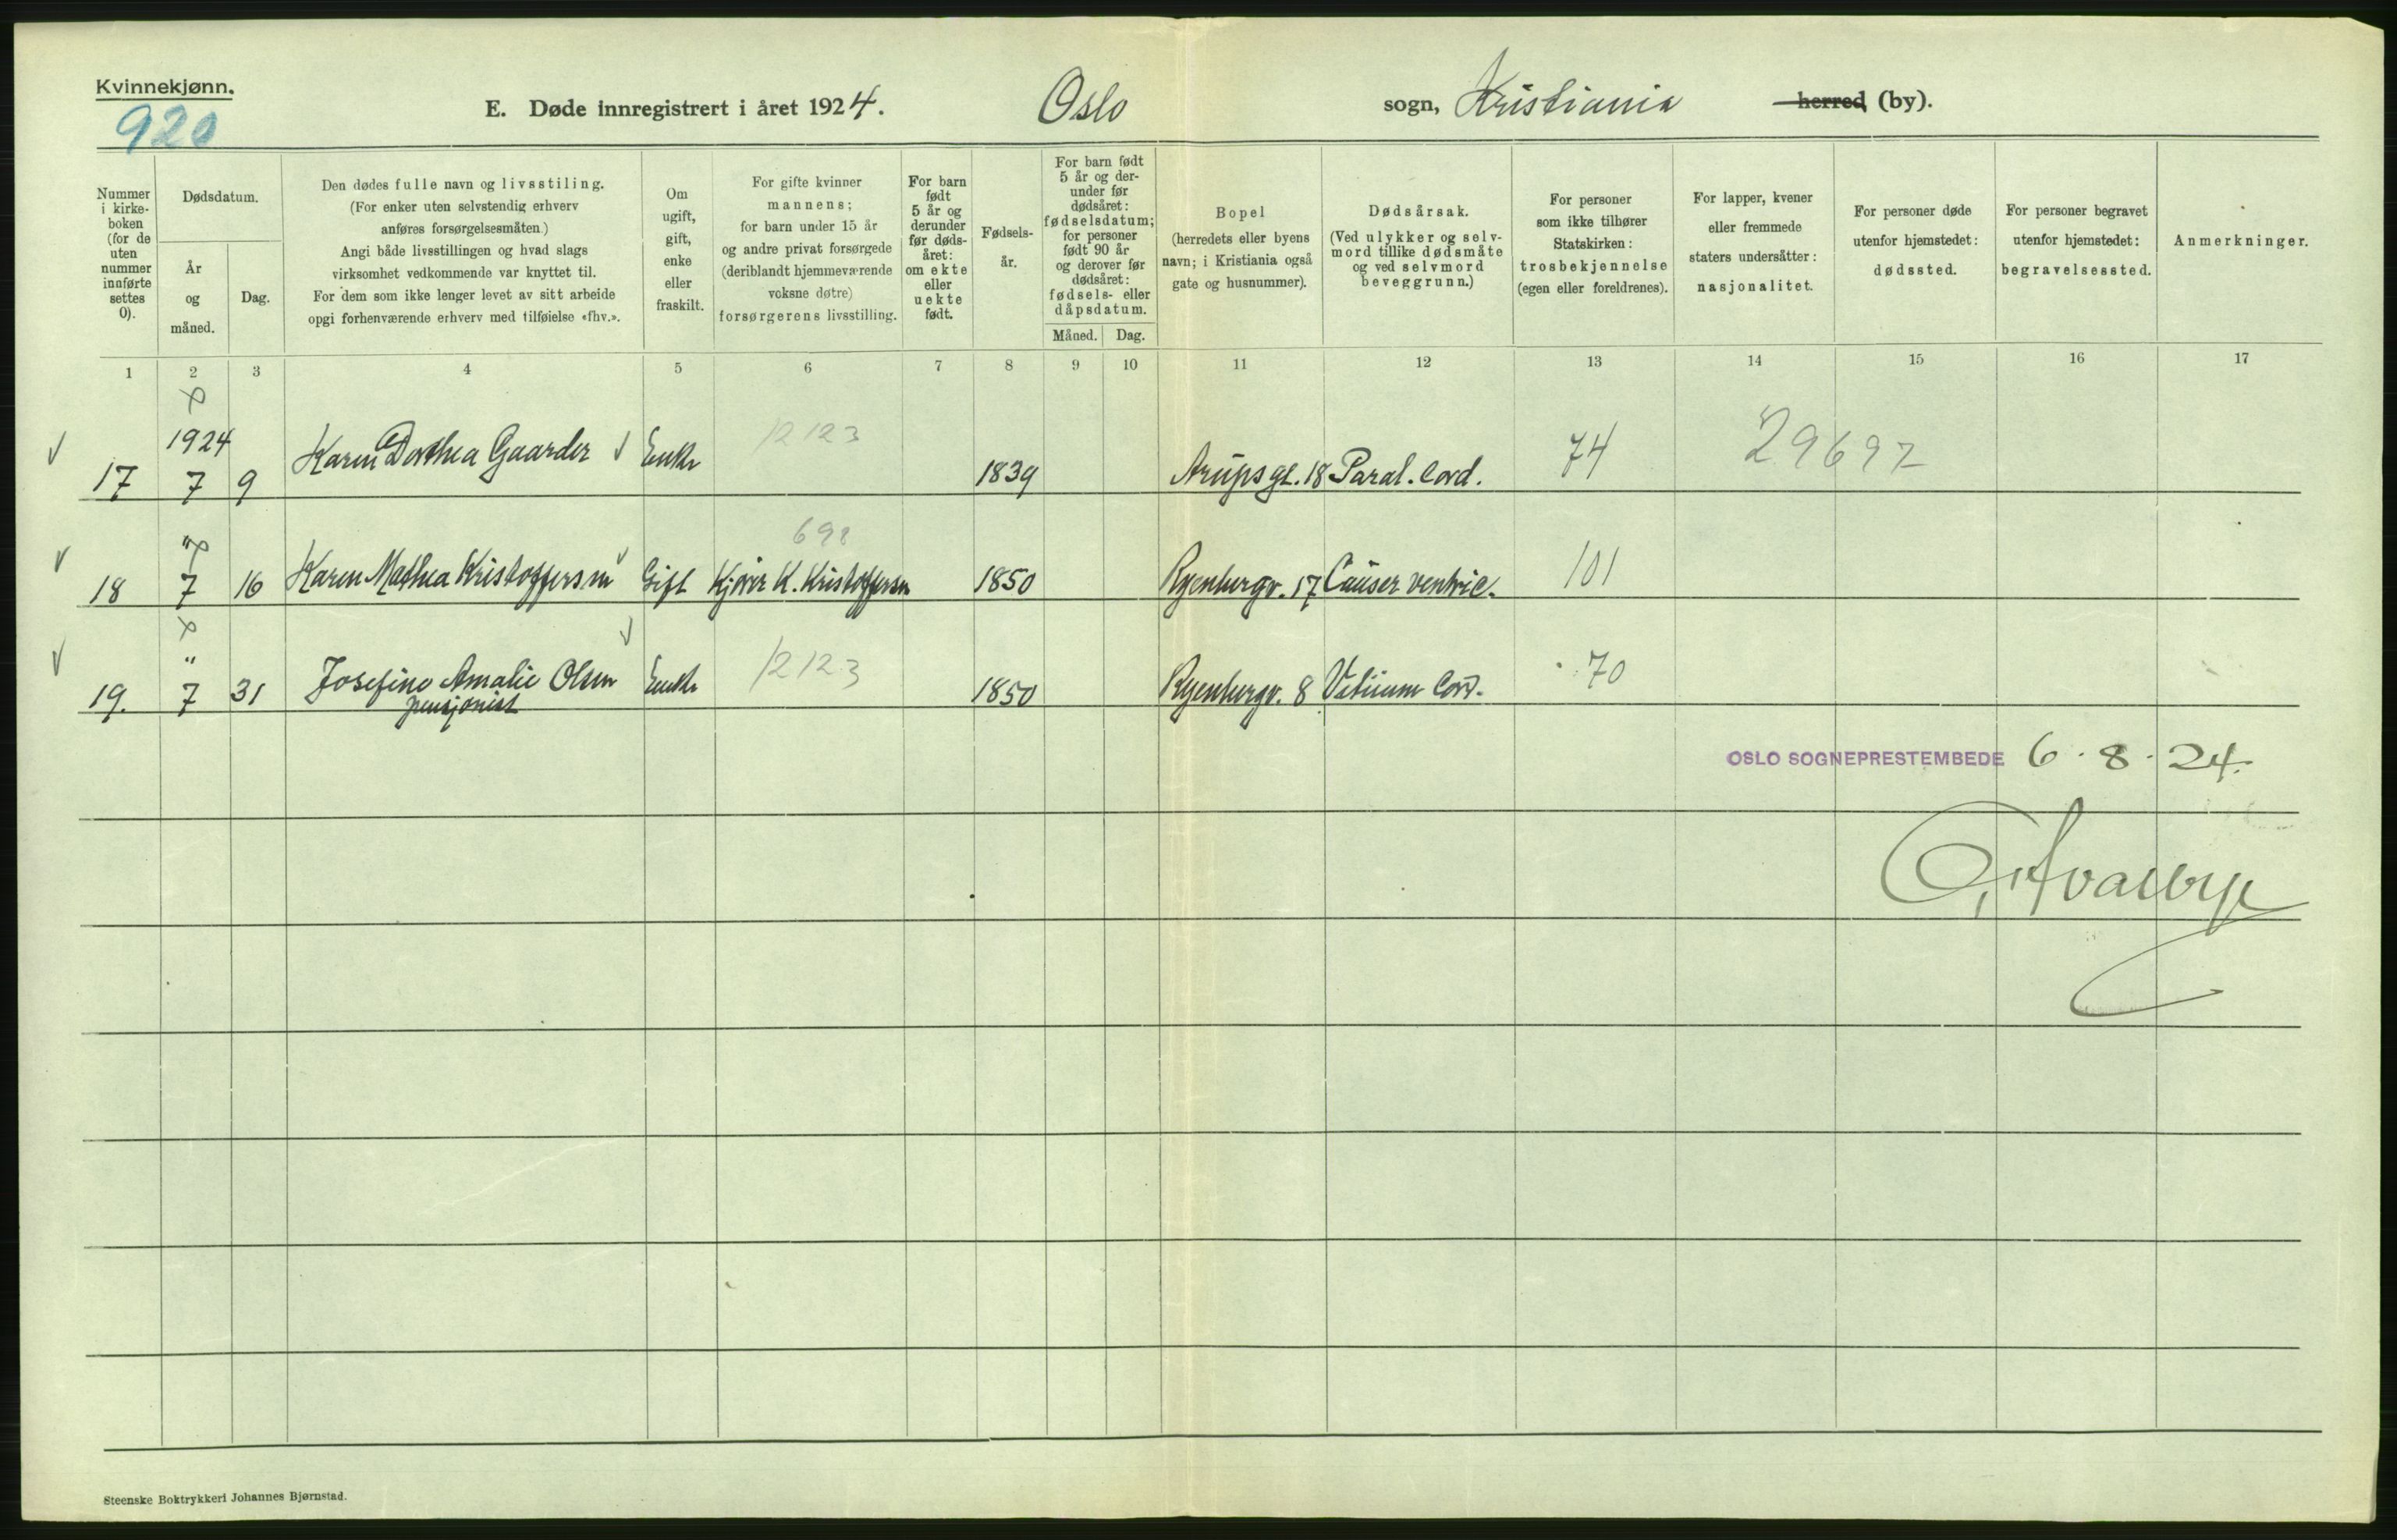 Kvinnekjønn.
920
E. Døde innregistrert i året 1924. Oslo sogn, Kristiania herred (by).
Nummer i kirke- boken (for de uten nummer innførte settes 0).
Dødsdatum.
År og måned.
Dag.
Den dødes fulle navn og livsstiling.
(For enker uten selvstendig erhverv
anføres forsørgelsesmåten.)
Angi både livsstillingen og hvad slags
virksomhet vedkommende var knyttet til.
For dem som ikke lenger levet av sitt arbeide
opgi forhenværende erhverv med tilføielse «fhv.».
Om
ugift,
gift,
enke
eller
fraskilt.
For gifte kvinner
mannens;
for barn under 15 år
og andre privat forsørgede
(deriblandt hjemmeværende
voksne døtre)
forsørgerens livsstilling.
For barn
født
5 år og
derunder
før døds-
året:
om ekte
eller
uekte
født.
Fødsels-
år.
For barn født
5 år og der-
under før
dødsåret:
fødselsdatum;
for personer
født 90 år
og derover før
dødsåret:
fødsels- eller
dåpsdatum.
Måned. Dag.
Bopel
(herredets eller byens
navn; i Kristiania også
gate og husnummer).
Dødsårsak.
(Ved ulykker og selv-
mord tillike dødsmåte
og ved selvmord
beveggrunn.)
For personer
som ikke tilhører
Statskirken:
trosbekjennelse
(egen eller foreldrenes).
For lapper, kvener
eller fremmede
staters undersåtter:
nasjonalitet.
For personer døde
utenfor hjemstedet:
dødssted.
For personer begravet
utenfor hjemstedet:
begravelsessted.
Anmerkninger.
1 2 3 4 5 6 7 8 9 10 11 12 13 14 15 16 17
1924
17 7 9 Karen Dorthea Gaarder Enke 12123 1839 Arupsgt. 18 Paral. Cord. 74 29692
698
18 " 7 16 Karen Mathea Kristoffersen Gift Kjører K. Kristoffersen 1850 Ryenbergv. 17 Canser ventric. 101
19. " 7 31 Josefine Amalie Olsen Enke 12123 1850 Ryenbergv. 8 Vitium Cord. 70
pensjonist
OSLO SOGNEPRESTEMBEDE 6.8.24.
Steenske Boktrykkeri Johannes Bjørnstad.